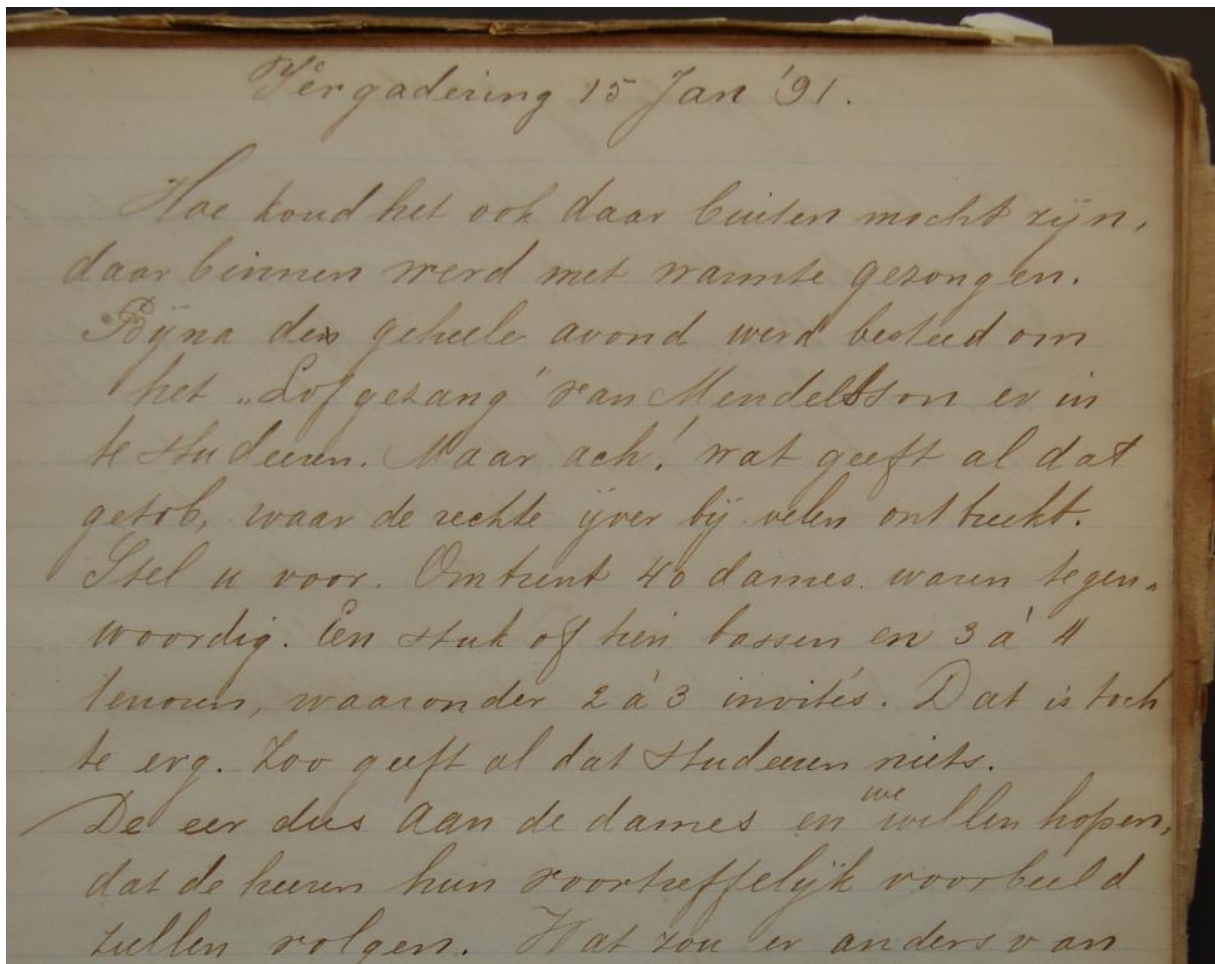 Vergadering 15 Jan '91.
Hoe koud het ook daar buiten mocht zijn,
daar binnen werd met warmte gezongen.
Bijna den geheele avond werd besteed om
het „Lofgezang" van Mendelsson er in
te studeeren. Maar ach! wat geeft al dat
getob, waar de rechte ijver bij velen ontbreekt.
Stel u voor. Omtrent 40 dames waren tegen-
woordig. Een stuk of tien bassen en 3 à 4
tenoren, waaronder 2 à 3 invités. Dat is toch
te erg. Zoo geeft al dat studeeren niets.
De eer dus aan de dames en we willen hopen,
dat de heeren hun voortreffelijk voorbeeld
zullen volgen. Wat zou er anders van